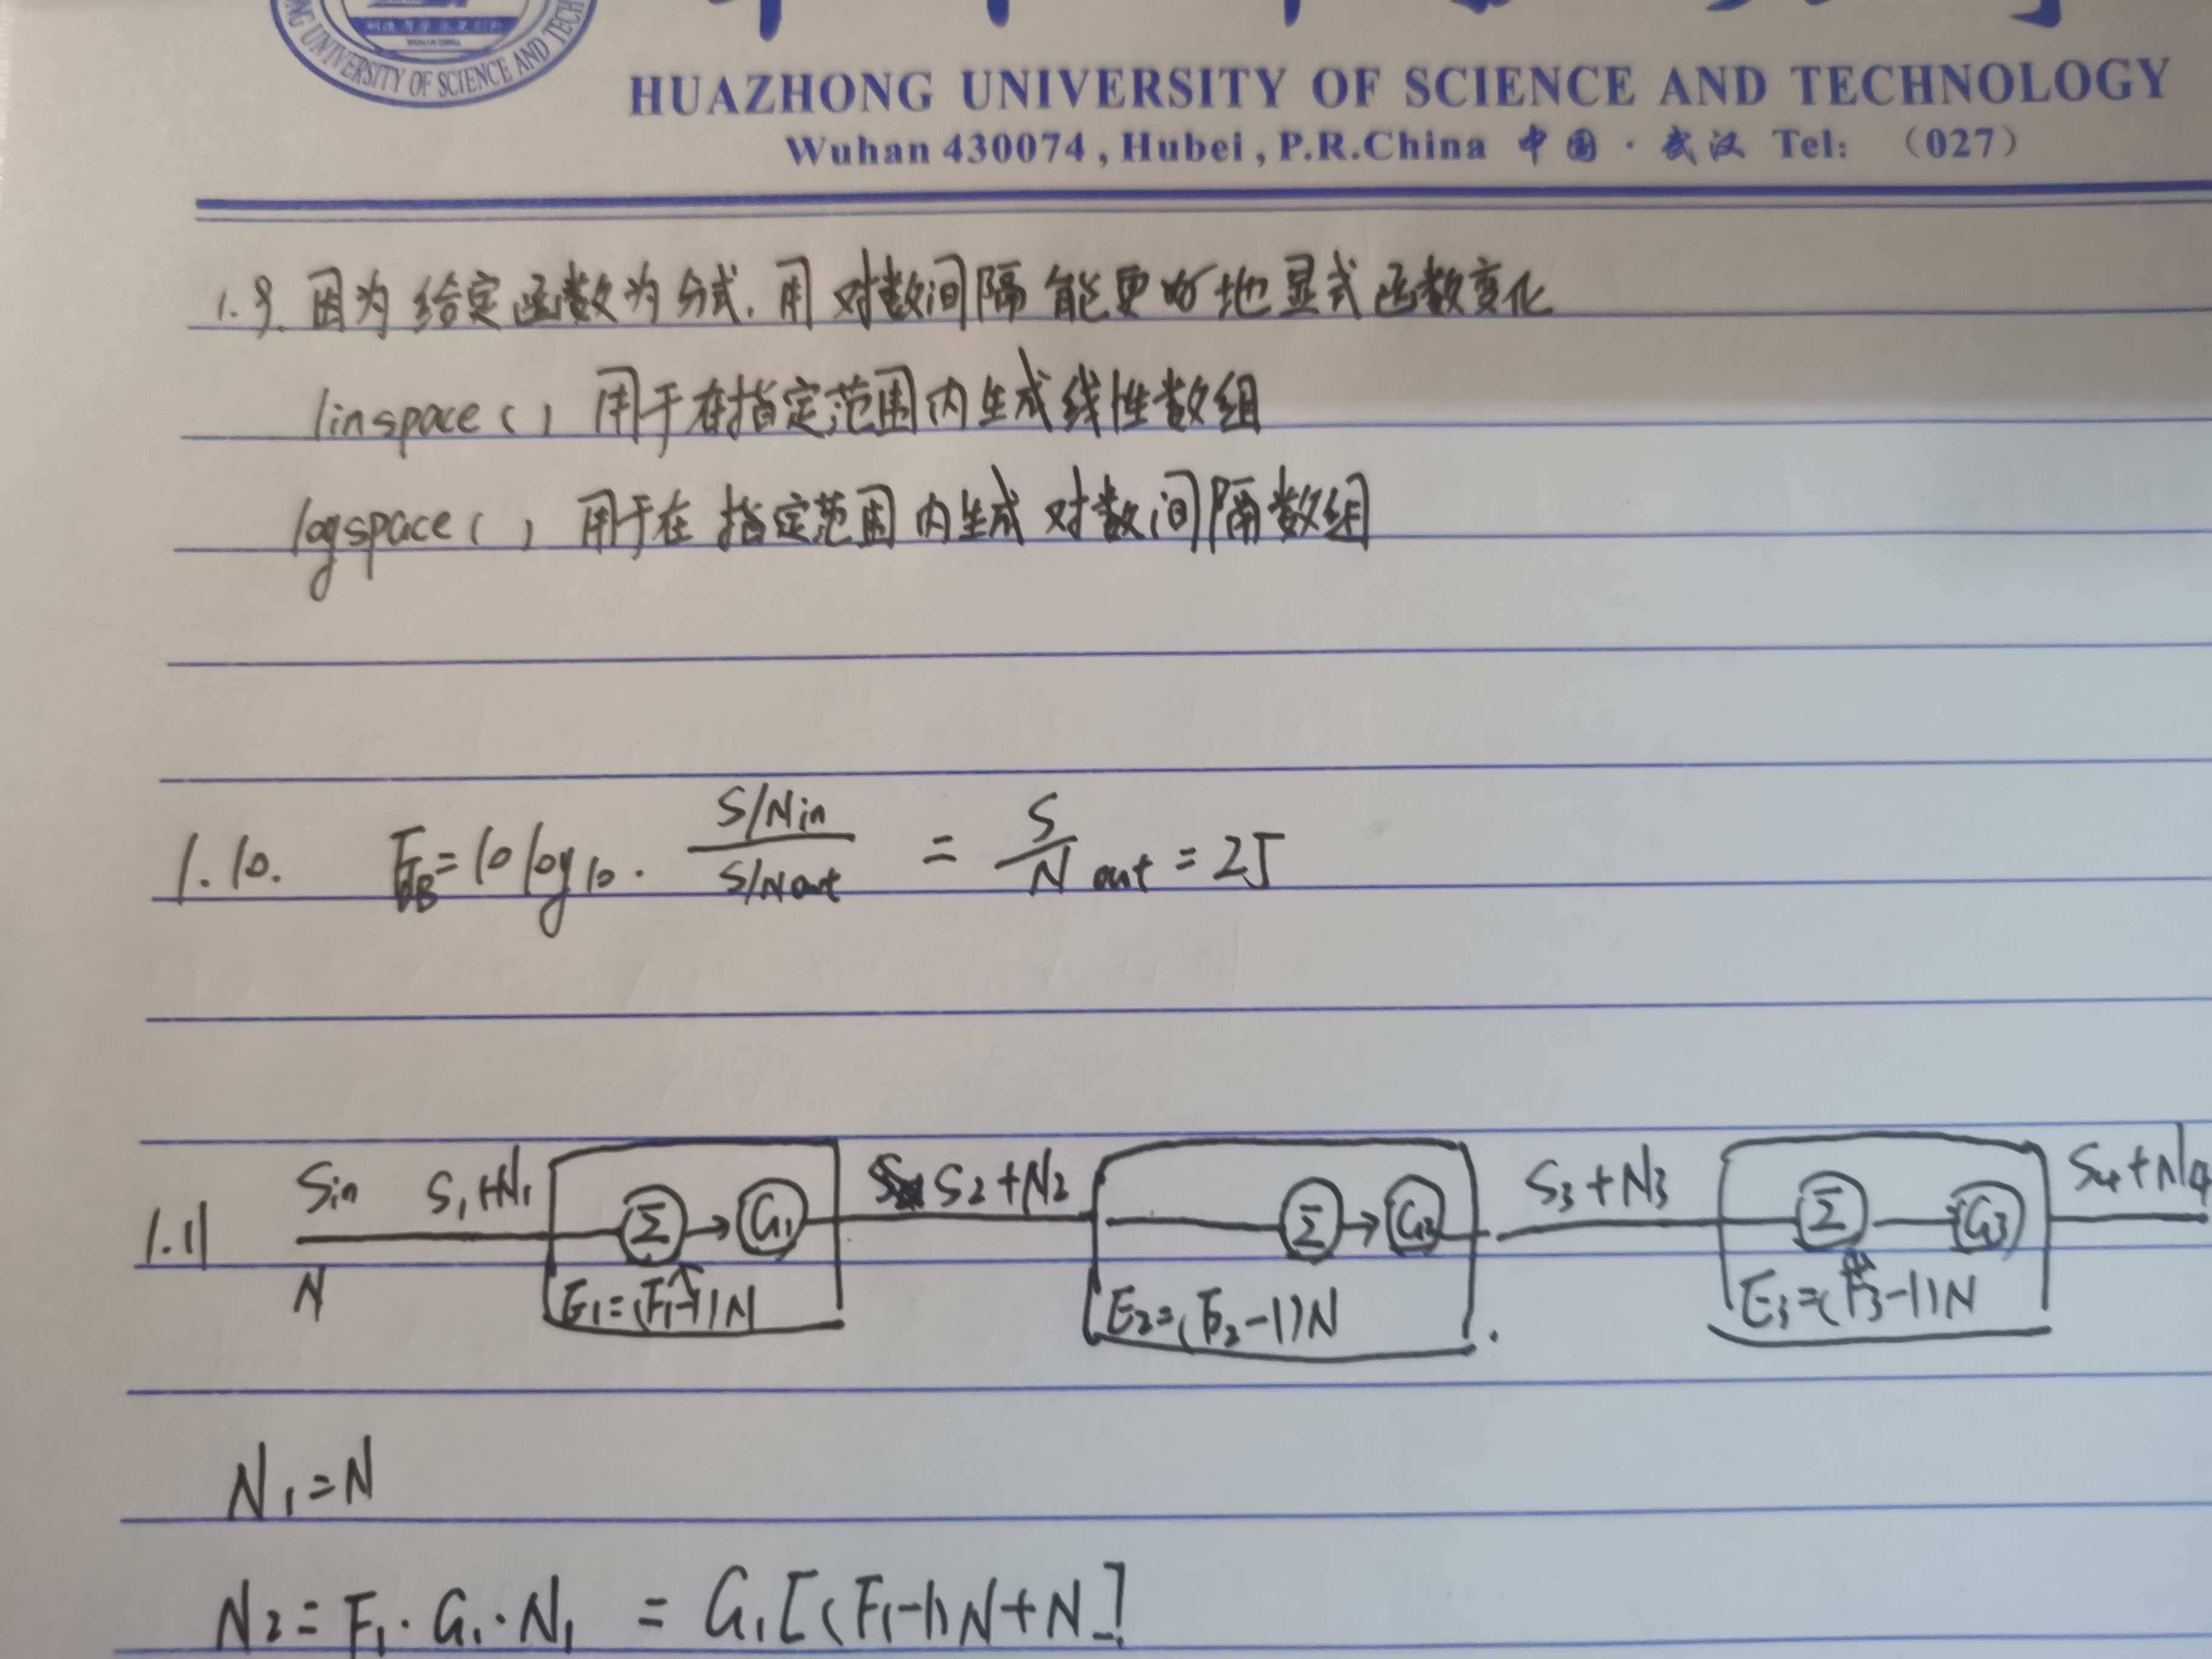 UNIVERSITY OF SCIENCE AND TECH
HUAZHONG UNIVERSITY OF SCIENCE AND TECHNOLOGY
Wuhan 430074, Hubei, P.R.China 中国·武汉 Tel: (027)
1.9. 因为给定函数为分式,用对数间隔能更好地显式函数变化
linspace() 用于在指定范围内生成线性数组
logspace() 用于在指定范围内生成对数间隔数组
1.10. FdB=10log10· (S/Nin)/(S/Nout) = S/N out = 25
1.11 Sin S1+N1 Σ → G1 S2+N2 Σ → G2 S3+N3 Σ G3 S4+N4
N E1=(F1-1)N E2=(F2-1)N E3=(F3-1)N
N1=N
N2=F1·G1·N1 = G1[(F1-1)N+N]